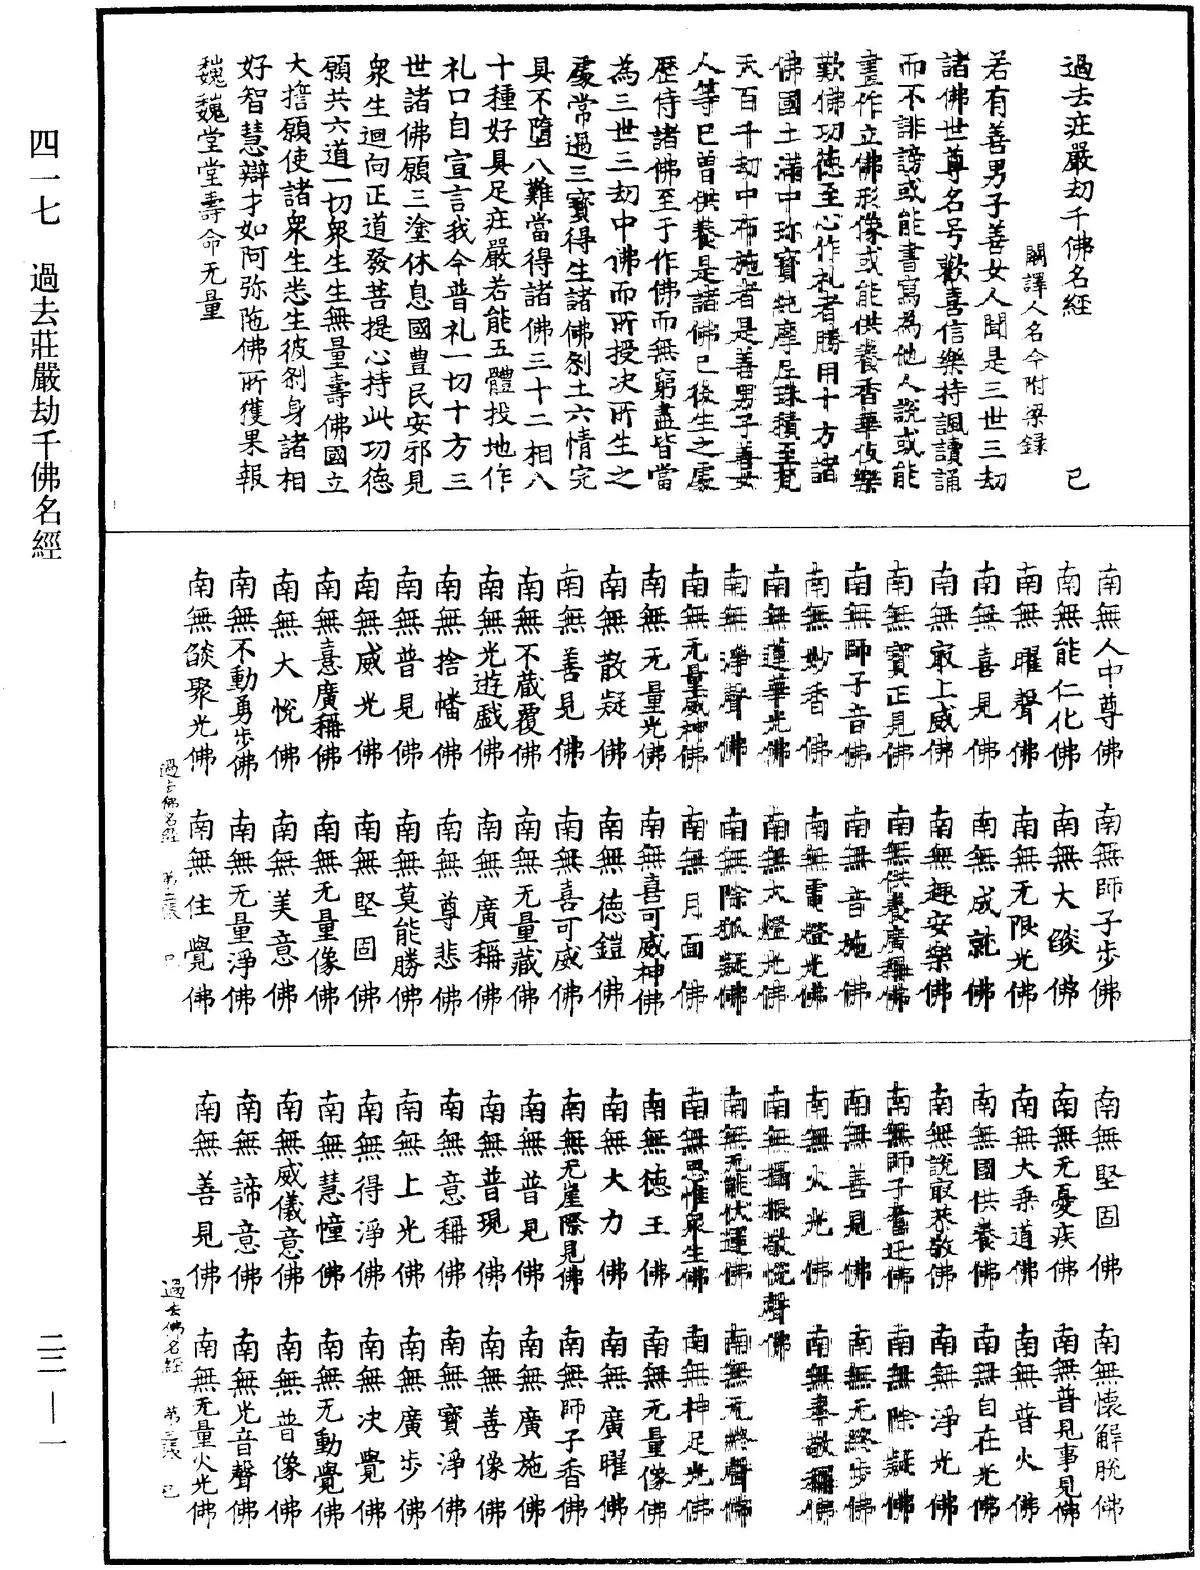 四一七　過去莊嚴劫千佛名經
二二—一
過去庄嚴劫千佛名經　已
闕譯人名今附梁録
若有善男子善女人聞是三世三劫
諸佛世尊名号歡喜信樂持諷讀誦
而不誹謗或能書寫為他人說或能
畫作立佛形像或能供養香華伎樂
歎佛功德至心作礼者勝用十方諸
佛國土滿中珎寶純摩尼珠積至梵
天百千劫中布施者是善男子善女
人等已曾供養是諸佛已後生之處
歷侍諸佛至于作佛而無窮盡皆當
為三世三劫中佛而所授决所生之
處常遇三寶得生諸佛剎土六情完
具不墮八難當得諸佛三十二相八
十種好具足庄嚴若能五體投地作
礼口自宣言我今普礼一切十方三
世諸佛願三塗休息國豊民安邪見
衆生迴向正道發菩提心持此功德
願共六道一切衆生生無量壽佛國立
大擔願使諸衆生悉生彼剎身諸相
好智慧辯才如阿弥陁佛所獲果報
巍巍堂堂壽命无量
南無人中尊佛　南無師子步佛
南無能仁化佛　南無大𦦨佛
南無曜聲佛　南無无限光佛
南無喜見佛　南無成就佛
南無㝡上威佛　南無趣安樂佛
南無寶正見佛　南無供養廣稱佛
南無師子音佛　南無音施佛
南無妙香佛　南無電燈光佛
南無蓮華光佛　南無大燈光佛
南無淨聲佛　南無除狐疑佛
南無无量威神佛　南無月面佛
南無无量光佛　南無喜可威神佛
南無散疑佛　南無德鎧佛
南無善見佛　南無喜可威佛
南無不藏覆佛　南無无量藏佛
南無光遊戲佛　南無廣稱佛
南無捨幡佛　南無尊悲佛
南無普見佛　南無莫能勝佛
南無威光佛　南無堅固佛
南無意廣稱佛　南無无量像佛
南無大悅佛　南無美意佛
南無不動勇步佛　南無无量淨佛
南無𦦨聚光佛　南無住覺佛
過去佛名經　第二張　已
南無堅固佛　南無懷解脫佛
南無无憂疾佛　南無普見事見佛
南無大乘道佛　南無普火佛
南無國供養佛　南無自在光佛
南無說㝡恭敬佛　南無淨光佛
南無師子奮迅佛　南無除疑佛
南無善見佛　南無无終步佛
南無火光佛　南無奉敬稱佛
南無攝根敬悅聲佛
南無无能伏運佛　南無无終聲佛
南無思惟衆生佛　南無神足光佛
南無德王佛　南無无量像佛
南無大力佛　南無廣曜佛
南無无崖際見佛　南無師子香佛
南無普見佛　南無廣施佛
南無普現佛　南無善像佛
南無意稱佛　南無寶淨佛
南無上光佛　南無廣步佛
南無得淨佛　南無决覺佛
南無慧幢佛　南無无動覺佛
南無威儀意佛　南無普像佛
南無諦意佛　南無光音聲佛
南無善見佛　南無无量火光佛
過去佛名經　第三張　已